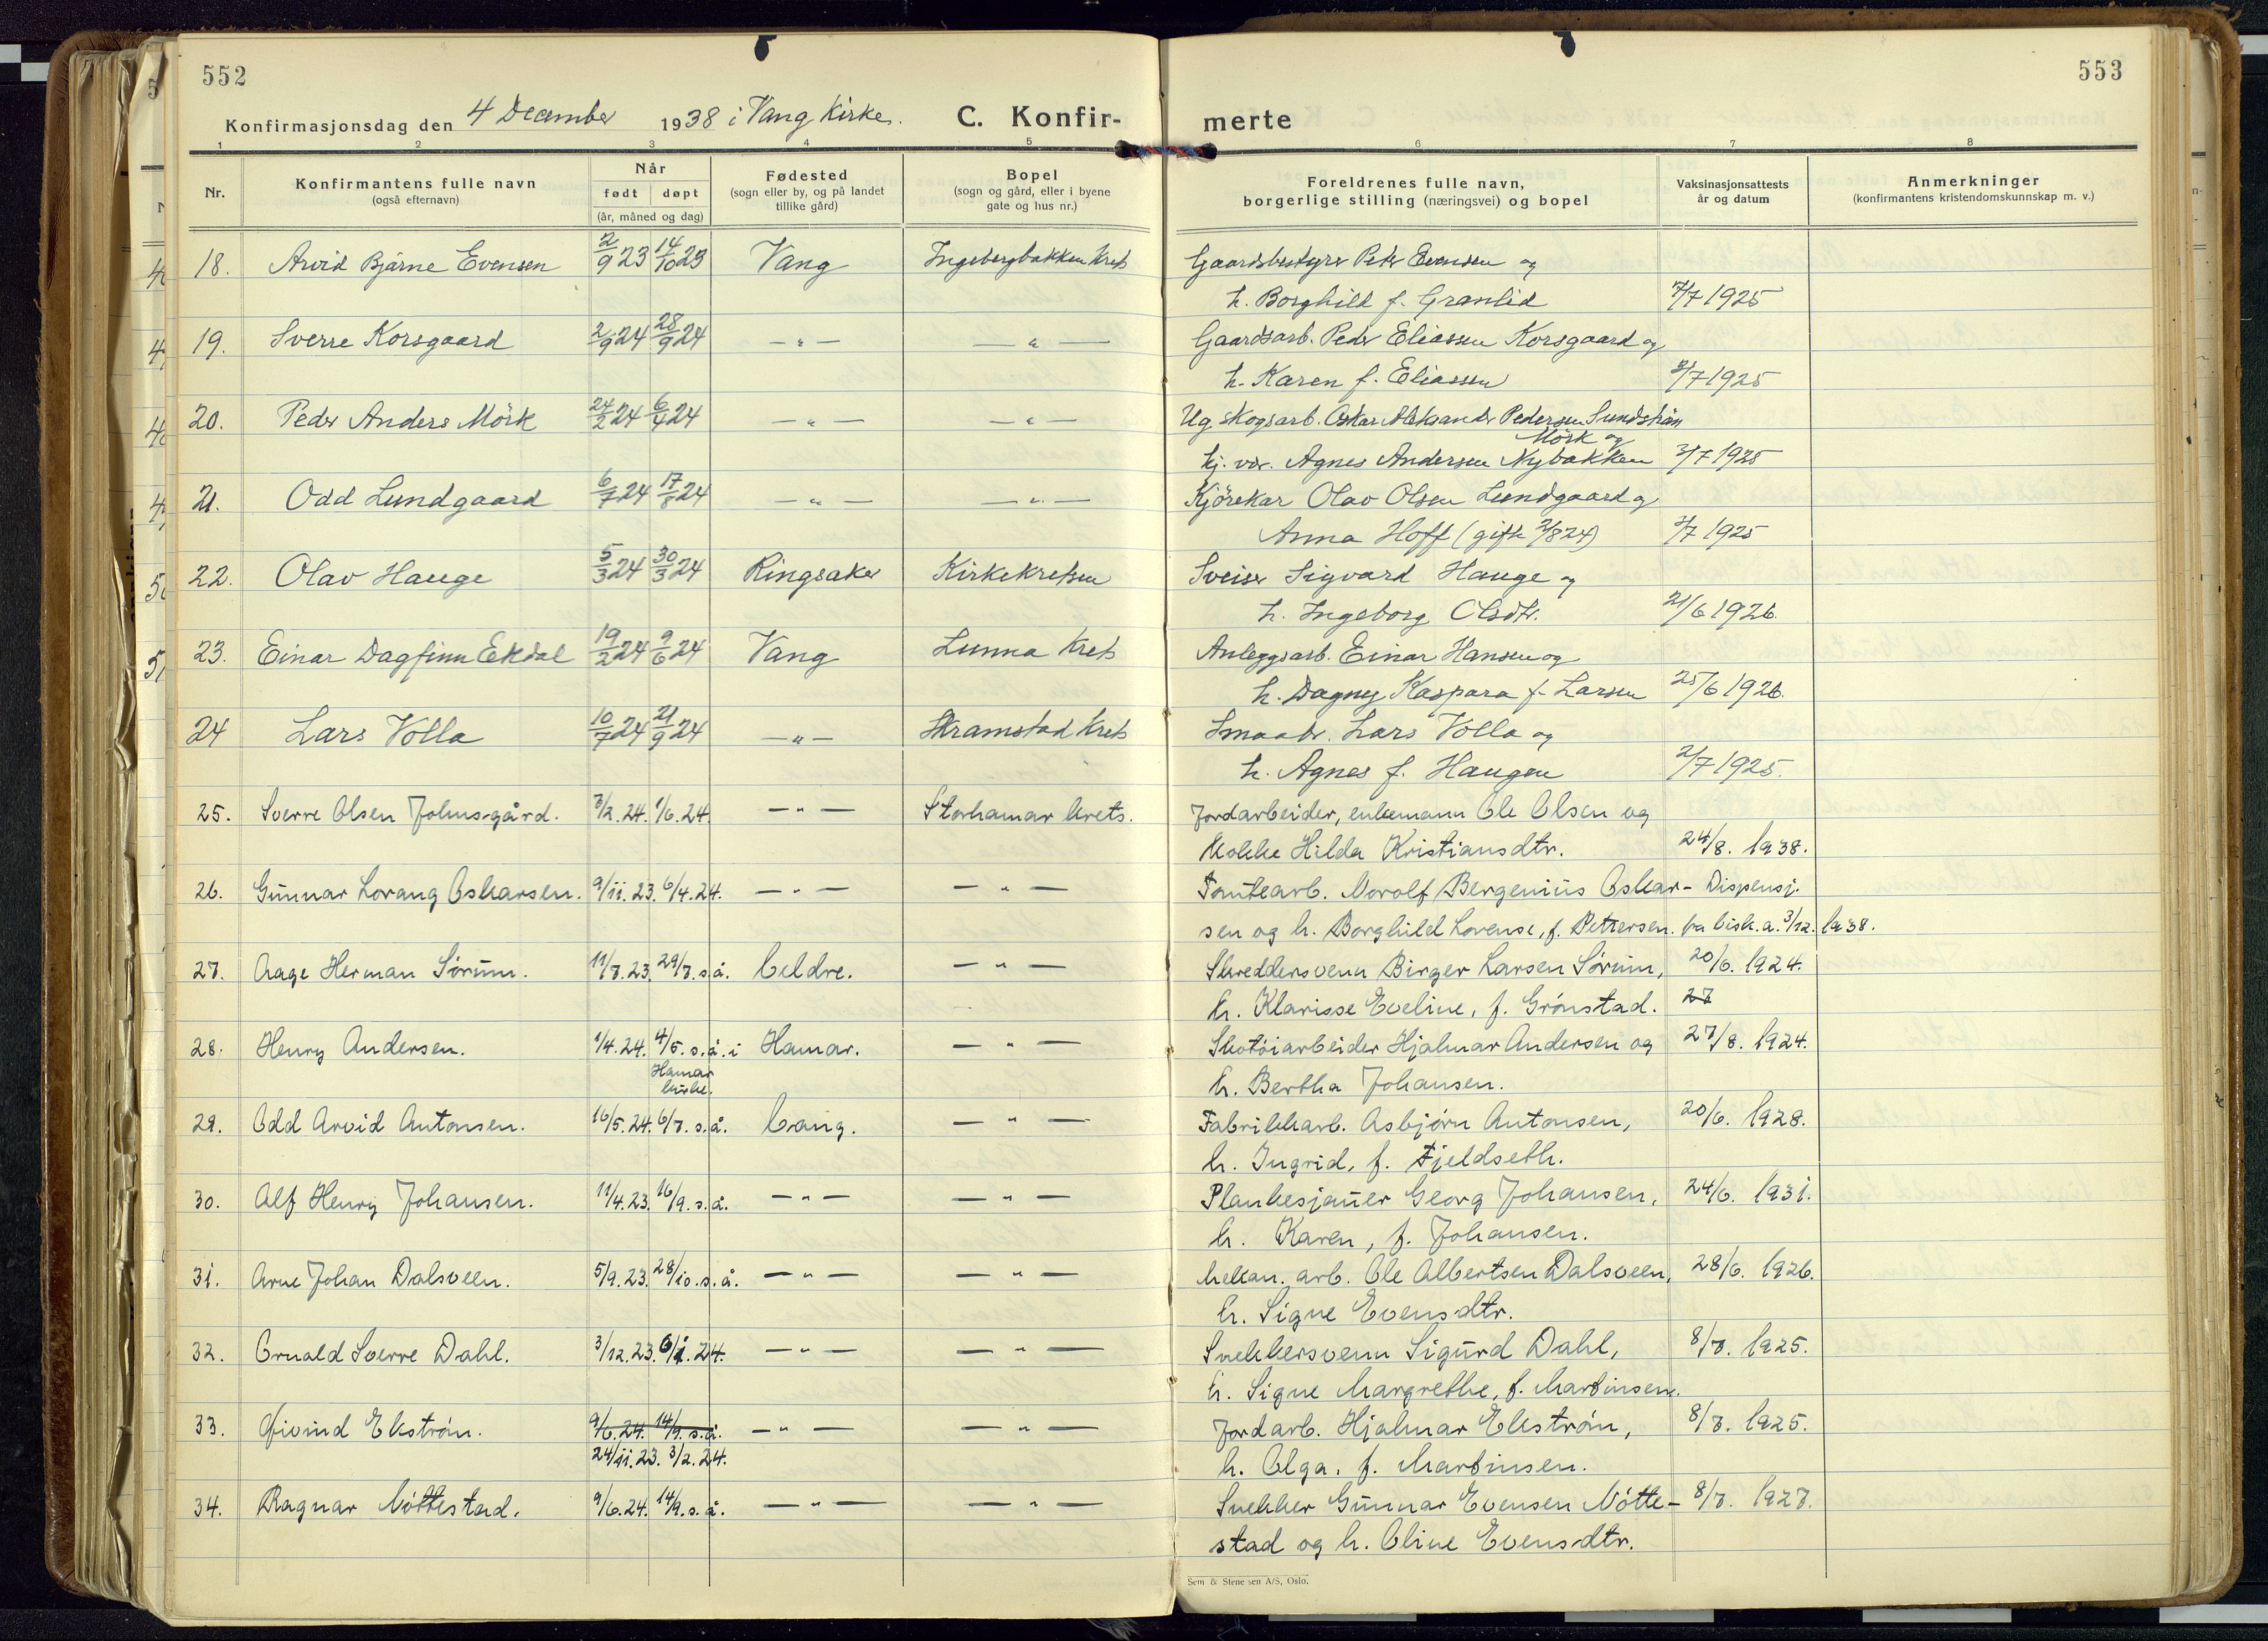 552
553
Konfirmasjonsdag den 4 December 1938 i Vang Kirke.
C. Konfir-
merte
1 2 3 4 5 6 7 8
Nr.
Konfirmantens fulle navn
(også efternavn)
Når
født døpt
(år, måned og dag)
Fødested
(sogn eller by, og på landet
tillike gård)
Bopel
(sogn og gård, eller i byene
gate og hus nr.)
Foreldrenes fulle navn,
borgerlige stilling (næringsvei) og bopel
Vaksinasjonsattests
år og datum
Anmerkninger
(konfirmantens kristendomskunnskap m. v.)
18. Arvid Bjarne Evensen 2/9 23 14/10 23 Vang Ingebergbakken Krets Gaardsbestyrer Peder Evensen og
h. Borghild f. Granlid 7/7 1925
19. Sverre Korsgaard 2/9 24 28/9 24 — " — — " — Gaardsarb. Peder Eliassen Korsgaard og
h. Karen f. Eliassen 2/7 1925
20. Peder Anders Mörk 24/2 24 6/4 24 — " — — " — Ug. skogsarb. Oskar Aleksander Pedersen Sundström
Mörk og
hj. vær. Agnes Andersen Nybakken 2/7 1925
21. Odd Lundgaard 6/7 24 17/8 24 — " — — " — Kjörekar Olav Olsen Lundgaard og
Anna Hoff (gift 2/8 24) 2/7 1925
22. Olav Hauge 5/3 24 30/3 24 Ringsaker Kirkekretsen Sveiser Sigvard Hauge og
h. Ingeborg Olsdtr. 21/6 1926.
23. Einar Dagfinn Ekdal 19/2 24 9/6 24 Vang Lunna Krets Anleggsarb. Einar Hansen og
h. Dagny Kaspara f. Larsen 25/6 1926.
24 Lars Volla 10/7 24 21/9 24 — " — Skramstad Krets Smaabr. Lars Volla og
h. Agnes f. Haugen 2/7 1925.
25. Sverre Olsen Johnsgård. 3/2. 24. 1/6. 24. — " — Storhamar krets. Jordarbeider, enkemann Ole Olsen og
Kokke Hilda Kristiansdtr. 24/8. 1938.
26. Gunnar Lorang Oskarsen. 9/11. 23. 6/4. 24. — " — — " — Tomtearb. Norolf Bergenius Oskar- Dispensj.
sen og h. Borghild Lovense, f. Pettersen. fra bisk. a. 3/12. 1938.
27. Aage Herman Sørum. 11/7. 23. 29/7. s. å. Veldre. — " — Skreddersvenn Birger Larsen Sørum, 20/6. 1924.
h. Klarisse Eveline, f. Grønstad. 27
28. Henry Andersen. 1/4. 24. 4/5. s. å. i Hamar. — " — Skotøiarbeider Hjalmar Andersen og 27/8. 1924.
Hamar
kirke. h. Bertha Johansen.
29. Odd Arvid Antonsen. 16/5. 24. 6/7. s. å. Vang. — " — Fabrikkarb. Asbjørn Antonsen, 20/6. 1928.
h. Ingrid, f. Fjeldseth.
30. Alf Henry Johansen. 11/4. 23. 16/9. s. å. — " — — " — Plankesjauer Georg Johansen, 24/6. 1931.
h. Karen, f. Johansen.
31. Arne Johan Dalsveen. 5/9. 23. 28/10. s. å. — " — — " — Mekan. arb. Ole Albertsen Dalsveen, 28/6. 1926.
h. Signe Evensdtr.
32. Ornald Sverre Dahl. 3/12. 23. 6/1. 24. — " — — " — Snekkersvenn Sigurd Dahl, 8/7. 1925.
h. Signe Margrethe, f. Martinsen.
33. Øivind Ekstrøm. 9/6. 24. 14/9. s. å. — " — — " — Jordarb. Hjalmar Ekstrøm, 8/7. 1925.
24/11. 23. 3/2. 24. h. Olga, f. Martinsen.
34. Ragnar Nøttestad. 9/6. 24. 14/9. s. å. — " — — " — Snekker Gunnar Evensen Nøtte- 8/7. 1927.
stad og h. Oline Evensdtr.
Sem & Stenersen A/S, Oslo.